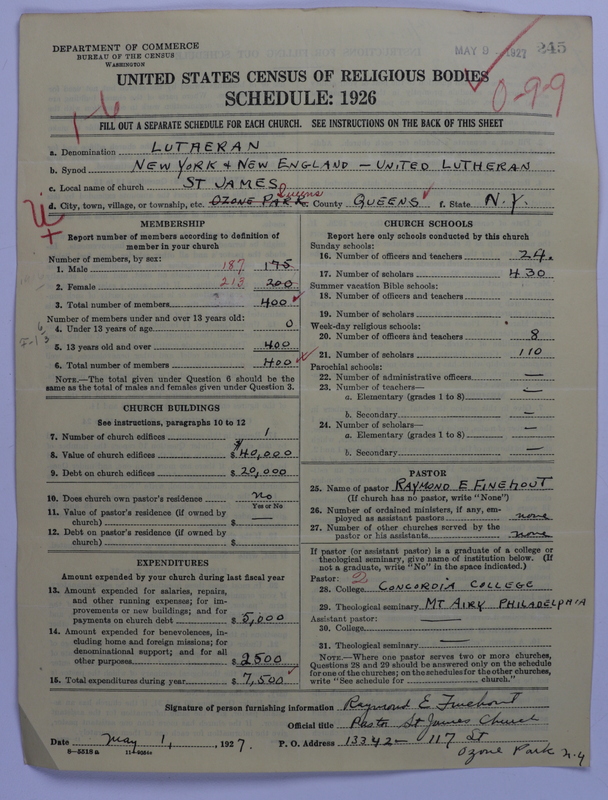 DEPARTMENT OF COMMERCE
BUREAU OF THE CENSUS
WASHINGTON
MAY 9 1927
245
UNITED STATES CENSUS OF RELIGIOUS BODIES
SCHEDULE: 1926
0-9-9
FILL OUT A SEPARATE SCHEDULE FOR EACH CHURCH. SEE INSTRUCTIONS ON THE BACK OF THIS SHEET
a. Denomination LUTHERAN
b. Synod NEW YORK & NEW ENGLAND - UNITED LUTHERAN
c. Local name of church ST JAMES
d. City, town, village, or township, etc. OZONE PARK Queens e. County QUEENS f. State N.Y.
MEMBERSHIP
Report number of members according to definition of
member in your church
Number of members, by sex:
1. Male 187 175
2. Female 213 200
3. Total number of members 400
Number of members under and over 13 years old:
4. Under 13 years of age 0
5. 13 years old and over 400
6. Total number of members 400
NOTE.—The total given under Question 6 should be the
same as the total of males and females given under Question 3.
CHURCH BUILDINGS
See instructions, paragraphs 10 to 12
7. Number of church edifices 1
8. Value of church edifices $ 40,000
9. Debt on church edifices $ 20,000
10. Does church own pastor's residence no
Yes or No
11. Value of pastor's residence (if owned by
church) $ —
12. Debt on pastor's residence (if owned by
church) $
EXPENDITURES
Amount expended by your church during last fiscal year
13. Amount expended for salaries, repairs,
and other running expenses; for im-
provements or new buildings; and for
payments on church debt $ 5,000
14. Amount expended for benevolences, in-
cluding home and foreign missions; for
denominational support; and for all
other purposes $ 2500
15. Total expenditures during year $ 7,500
CHURCH SCHOOLS
Report here only schools conducted by this church
Sunday schools:
16. Number of officers and teachers 24.
17. Number of scholars 430
Summer vacation Bible schools:
18. Number of officers and teachers
19. Number of scholars
Week-day religious schools:
20. Number of officers and teachers 8
21. Number of scholars 110
Parochial schools:
22. Number of administrative officers —
23. Number of teachers—
a. Elementary (grades 1 to 8) —
b. Secondary —
24. Number of scholars—
a. Elementary (grades 1 to 8) —
b. Secondary —
PASTOR
25. Name of pastor RAYMOND E FINEHOUT
(If church has no pastor, write "None")
26. Number of ordained ministers, if any, em-
ployed as assistant pastors none
27. Number of other churches served by the
pastor or his assistants none
If pastor (or assistant pastor) is a graduate of a college or
theological seminary, give name of institution below. (If
not a graduate, write "No" in the space indicated.)
Pastor: 2
28. College CONCORDIA COLLEGE
29. Theological seminary MT AIRY PHILADELPHIA
Assistant pastor:
30. College —
31. Theological seminary —
NOTE.—Where one pastor serves two or more churches,
Questions 28 and 29 should be answered only on the schedule
for one of the churches; on the schedules for the other churches,
write "See schedule for church."
Signature of person furnishing information Raymond E Finehout
Official title Pastor St James Church
Date May 1, 1927. P. O. Address 13342 - 117 St
Ozone Park N.Y
8-5518a